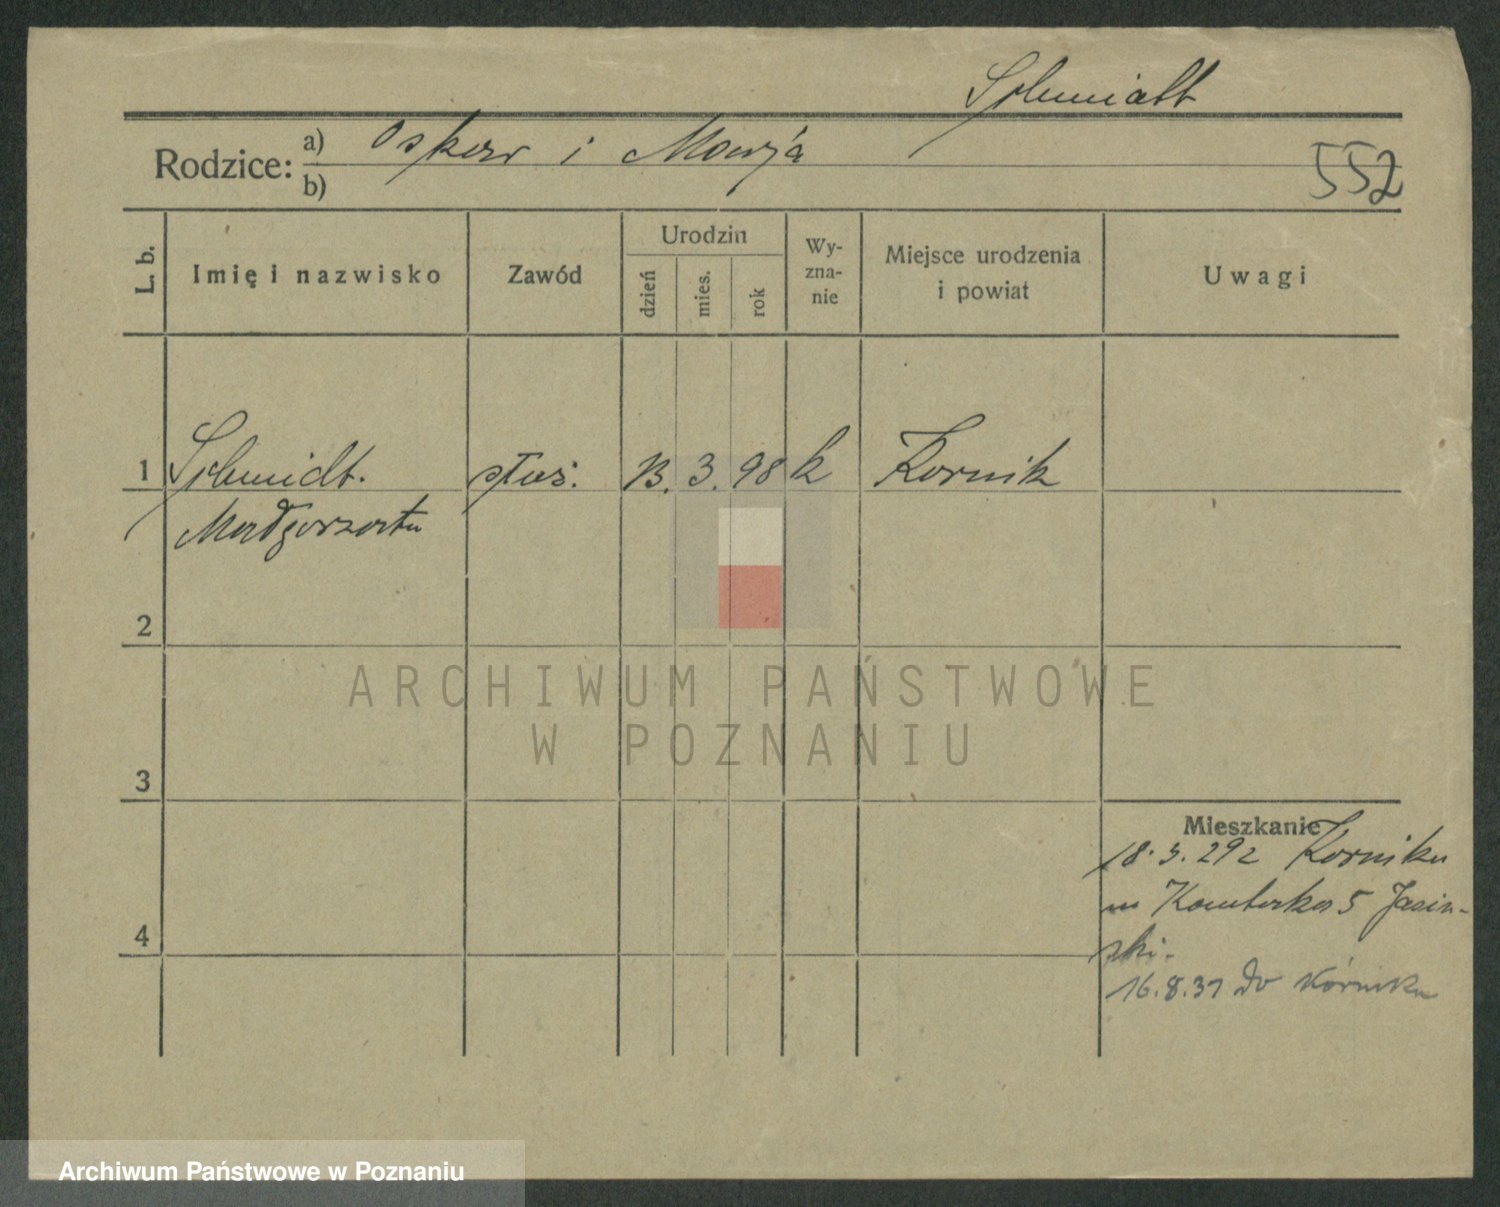 Schmidt
Rodzice:
a) Oskar i Marja
b)
552
L. b.
Imię i nazwisko
Zawód
Urodzin
dzień
mies.
rok
Wy-
zna-
nie
Miejsce urodzenia
i powiat
Uwagi
1 Schmidt. służ. 13. 3. 98 k Kornik
Małgorzata
2
3
4
Mieszkanie
18. 3. 29 z Kornika
5 Jasin-
ski.
16.8.31 do Kórnika
ARCHIWUM PAŃSTWOWE
W POZNANIU
Archiwum Państwowe w Poznaniu